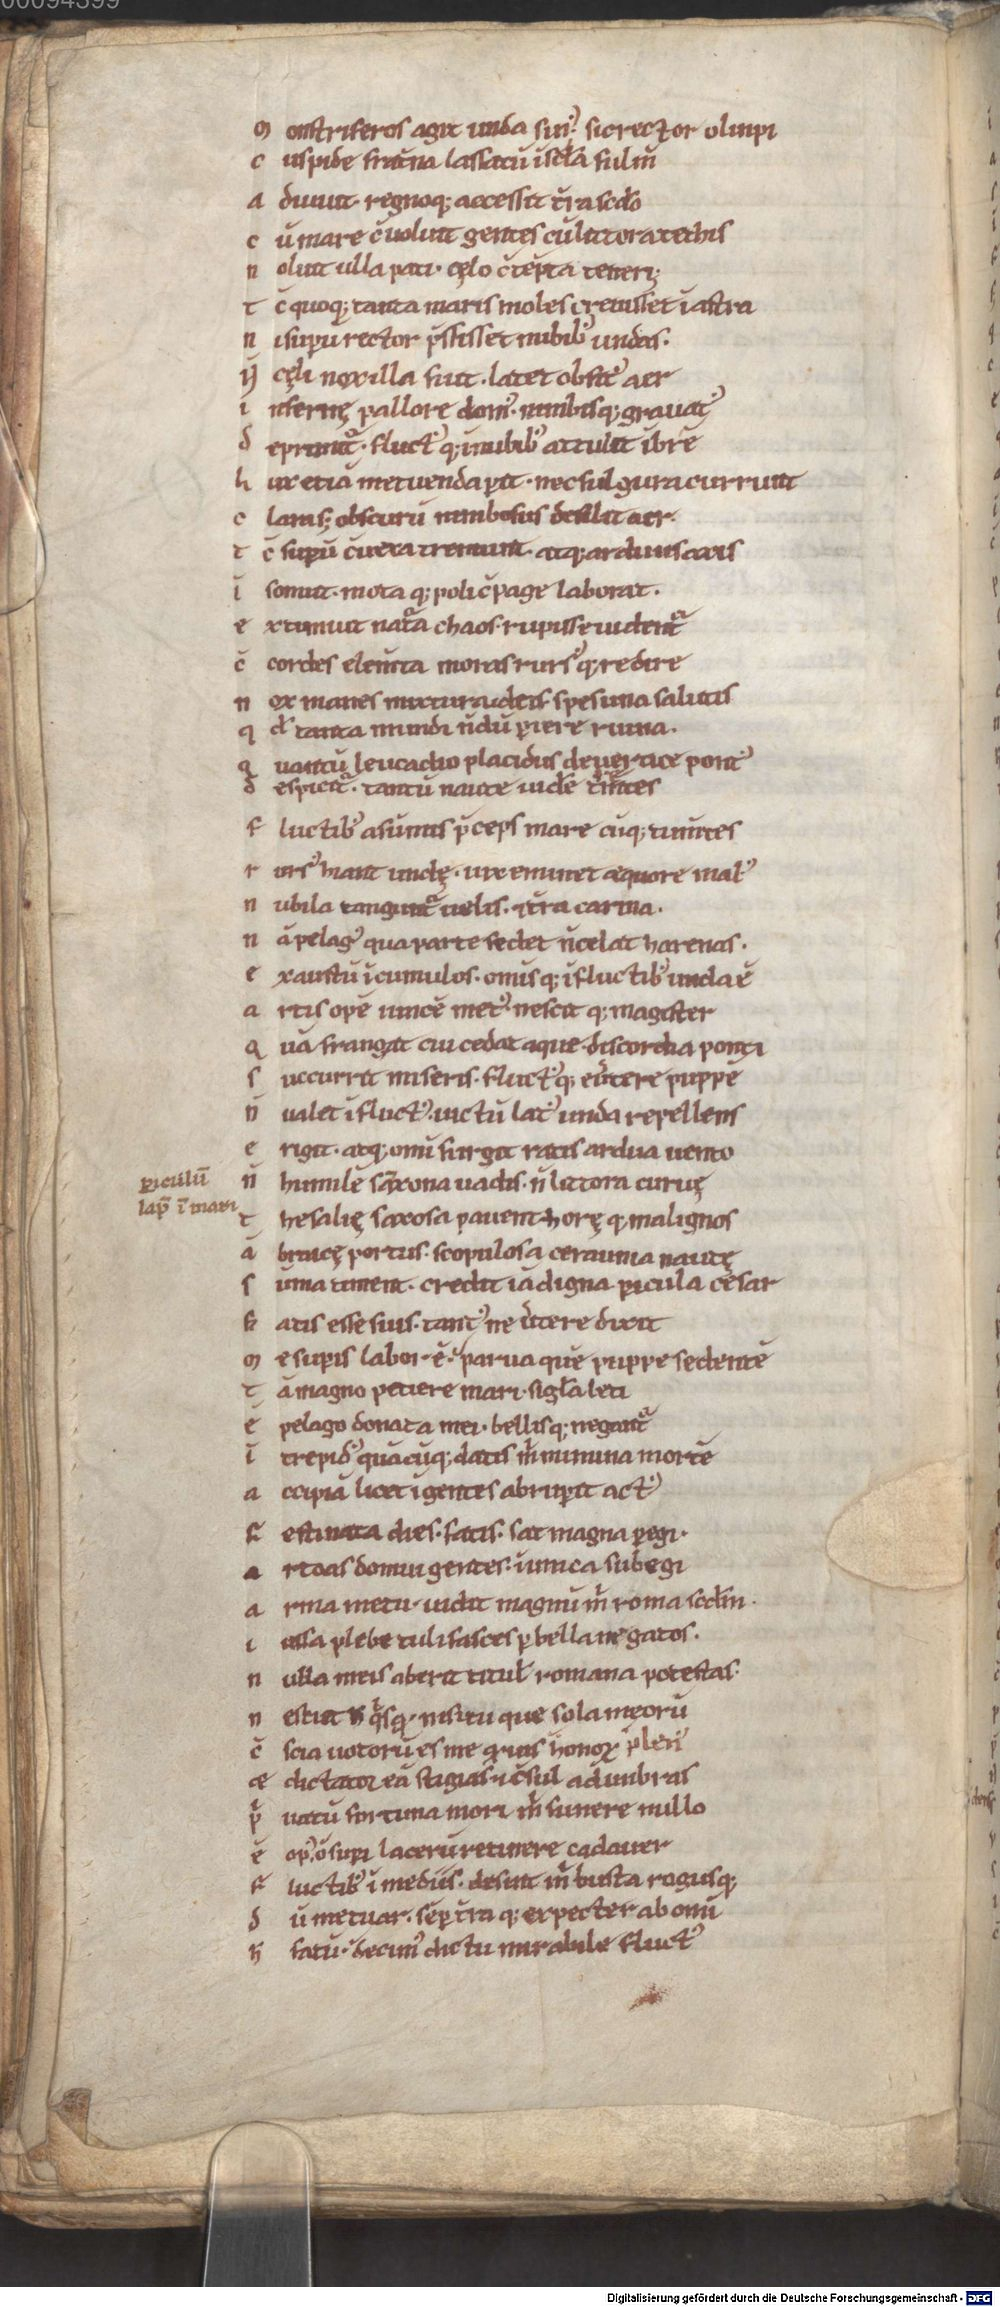 00094399
m onstriferos agit unda sin᷒. sic rector olimpi
c uspide frat̄na lassatū ī scl̄a fulm̄
a diuuit. regnoq; accessit t̄ra scdo
c ū mare c̄uoluit gentes cū littora tethis
n oluit ulla pati. cęlo c̄tēpta teneri;
t c̄ quoq; tanta maris moles creuisset ī astra
n i supū rector p̄ssisset nubib᷒ undas.
ñ cęli nox illa fuit. latet obsit᷒ aer
i nfernę pallore dom᷒. nimbisq; grauat᷒
d eprimit᷑. fluct᷒q; ī nubib᷒ accipit ībrē
l ux etiā metuenda perit. nec fulgura currunt
c laras; obscurū nimbosus desilit aer.
t c̄ supū c̄uexa tremunt. atq; arduus axis
ī sonuit. mota q; poli c̄page laborat.
e xtimuit nat᷑a chaos. rupisse uident᷑
c̄ cordes elem̄ta moras rurs᷒q; redire
n ox manes mixtura deis. spes una salutis
q d̄ tanta mundi n̄dū periere ruina.
q uantū leucadio placidus de uertice pont᷒
d espicit᷑. tantū naute uidere trem̄tes
f luctib᷒ a sūmis p̄ceps mare cūq; tum̄tes
r urs᷒ hiant undę. uix eminet equore mal᷒
n ubila tangunt᷑ uelis. & t̄ra carina.
n ā pelag᷒ qua parte sedet n̄ celat harenas.
e xaustū ī cumulos. omīsq; ī fluctib᷒ unda ē
a rtis opē uincē met᷒. nescit q; magister
q uā frangat cui cedat aque. discordia ponti
s uccurrit miseris. fluct᷒q; eu̅tere puppē
n̄ ualet ī fluct᷒. uictū lat᷒ unda repellens
e rigit. atq; omī surgit ratis ardua uento
n̄ humilē sāxona uadis. n̄ littora curuę
t hesalię saxosa pauent. horę q; malignos
ā bracię portus. scopulosa ceraunia nautę
s uma timent. credit iā digna pericula cesar
f atis esse suis. tant᷒ ne ūtere dixit
m e supis labor ē. parua quē puppe sedentē
t ā magno petiere mari. si gl̄a leti
ē pelago donata mei. bellisq; negant᷑
ī trepid᷒ quācūq; datis m̄ numina mortē
a ccipiā licet ī gentes abruperit act᷒
f estinata dies. fatis. sat magna peregi.
a rtoas domui gentes. inimica subegi
a rma metu. uidit magnū m̄ roma scdm̄.
i ussa plebe tuli fasces p̄ bella negatos.
n ulla meis aberit titul᷒ romana potestas.
n esciat h̄ q̄sq. nisi tu que sola meorū
c̄ scia uotorū es me quis honor᷒ plen᷒
& dictator eā stigias & c̄sul ad umbras
p̄ uatū fortuna mori m̄ funere nullo
ē op᷒ ō supi lacerū retinere cadauer
f luctib᷒ ī mediis. desint m̄ busta rogusq;
d ū metuar. sēp t̄ra q; expecter ab omī
h̄ fatū. decim᷒ dictu mirabile fluct᷒
periculū
lap̄ ī mari
Digitalisierung gefördert durch die Deutsche Forschungsgemeinschaft - DFG